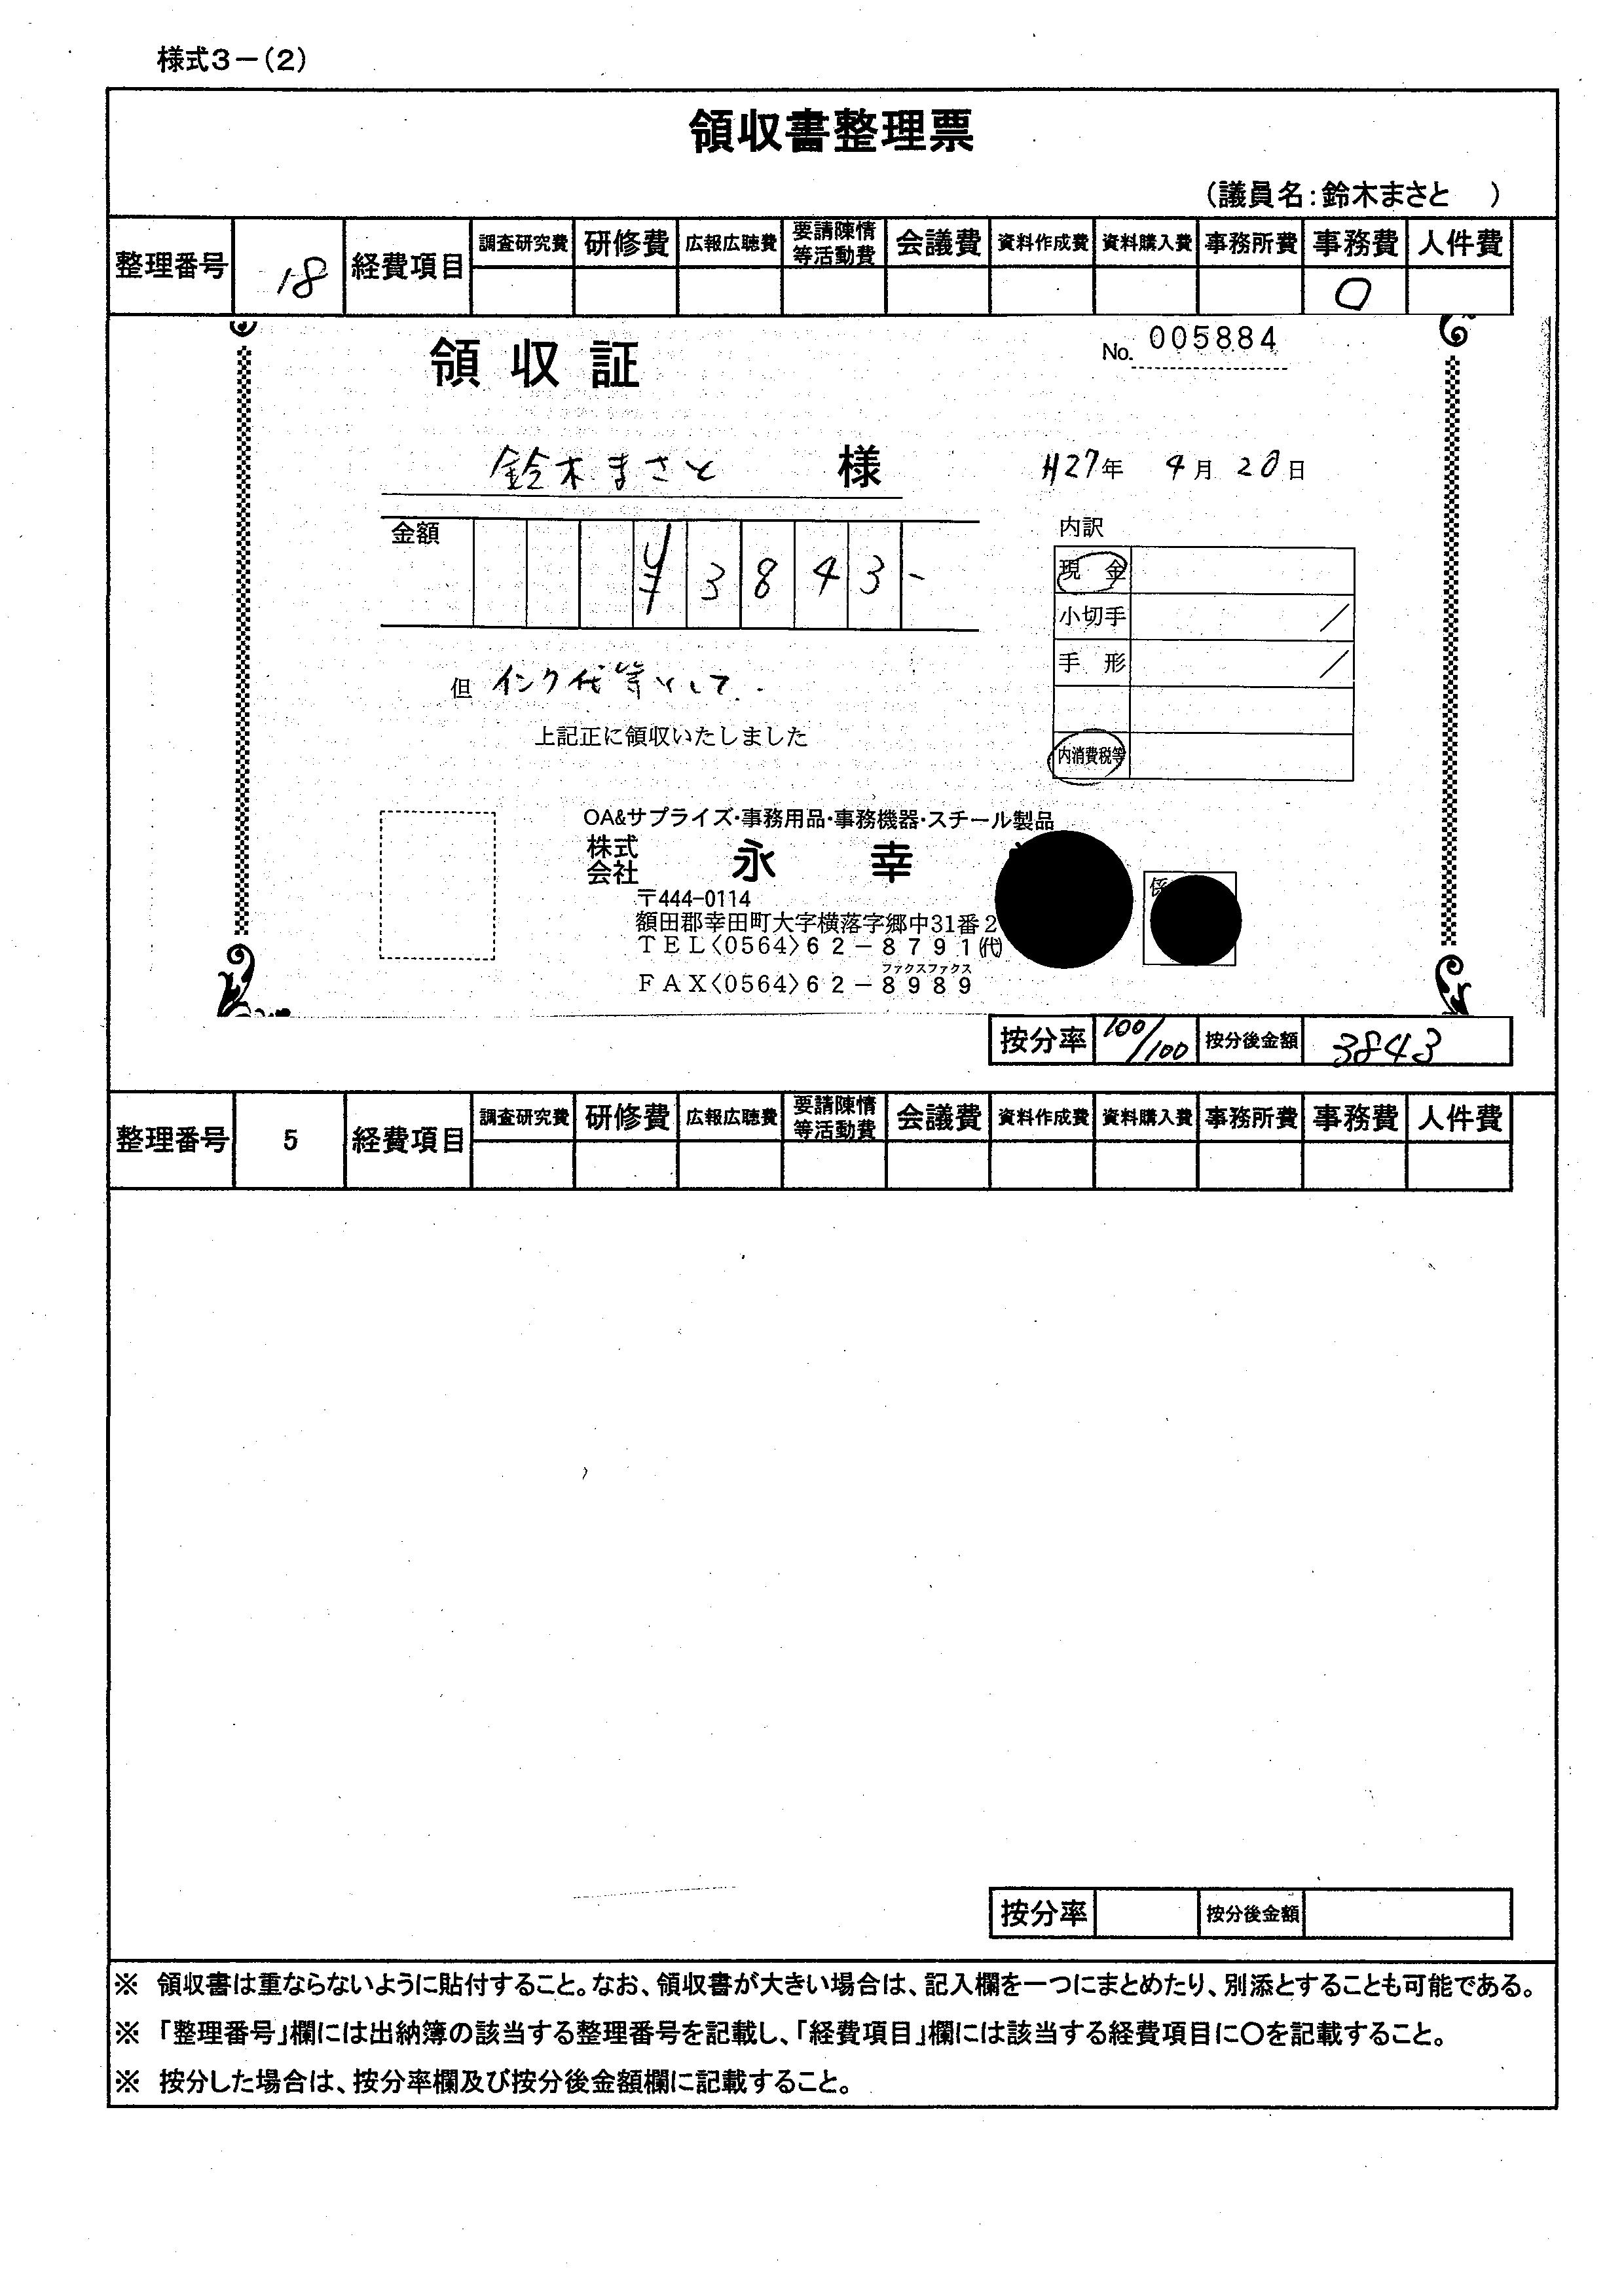 様式3－(2)
領収書整理票
(議員名:鈴木まさと　)
整理番号 18 経費項目 調査研究費 研修費 広報広聴費 要請陳情等活動費 会議費 資料作成費 資料購入費 事務所費 事務費 人件費
○
領収証
No. 005884
鈴木まさと 様
H27年 4月 20日
金額 ¥3843-
内訳
現金
小切手 /
手形 /
内消費税等
但 インク代等として.
上記正に領収いたしました
OA&サプライズ・事務用品・事務機器・スチール製品
株式会社 永幸
〒444-0114
額田郡幸田町大字横落字郷中31番2
TEL〈0564〉62－8791(代)
ファクスファクス
FAX〈0564〉62－8989
係
按分率 100/100 按分後金額 3843
整理番号 5 経費項目 調査研究費 研修費 広報広聴費 要請陳情等活動費 会議費 資料作成費 資料購入費 事務所費 事務費 人件費
按分率 按分後金額
※ 領収書は重ならないように貼付すること。なお、領収書が大きい場合は、記入欄を一つにまとめたり、別添とすることも可能である。
※ 「整理番号」欄には出納簿の該当する整理番号を記載し、「経費項目」欄には該当する経費項目に○を記載すること。
※ 按分した場合は、按分率欄及び按分後金額欄に記載すること。